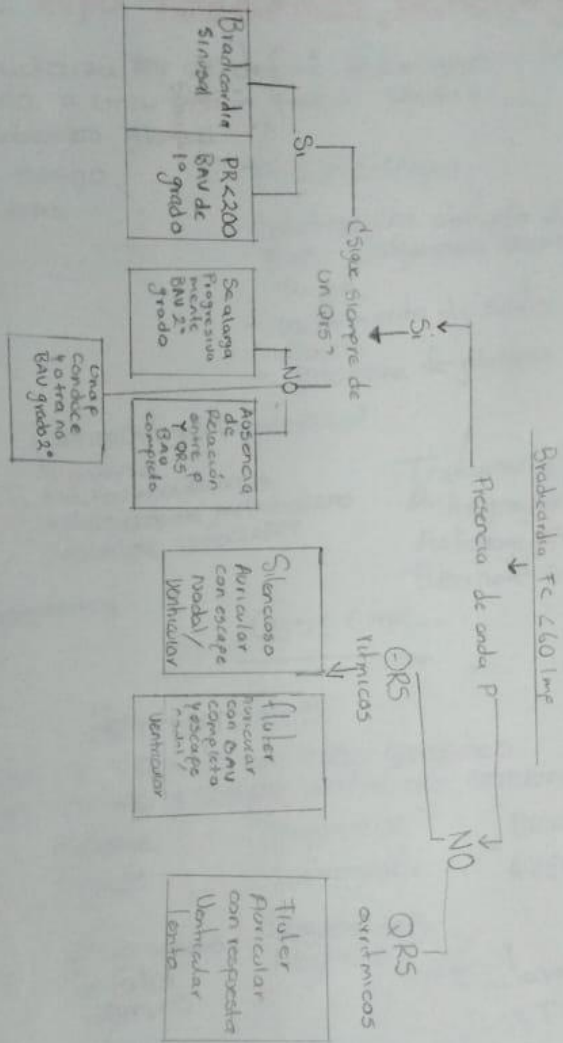 Bradicardia FC <60 lmp
Presencia de onda P
Si
NO
¿Sigue siempre de
un QRS?
Si
NO
Bradicardia
Sinusal
PR<200
BAV de
1º grado
Se alarga
Progresiva
mente
BAV 2º
grado
Ausencia
de
Relación
entre P
Y QRS
BAV
completo
Una P
conduce
y otra no
BAV grado 2º
QRS
ritmicos
QRS
arritmicos
Silencioso
Auricular
con escape
nodal/
Ventricular
fluter
auricular
con BAV
completo
y escape
nodal/
Ventricular
Fluter
Auricular
con respuesta
Ventricular
lenta